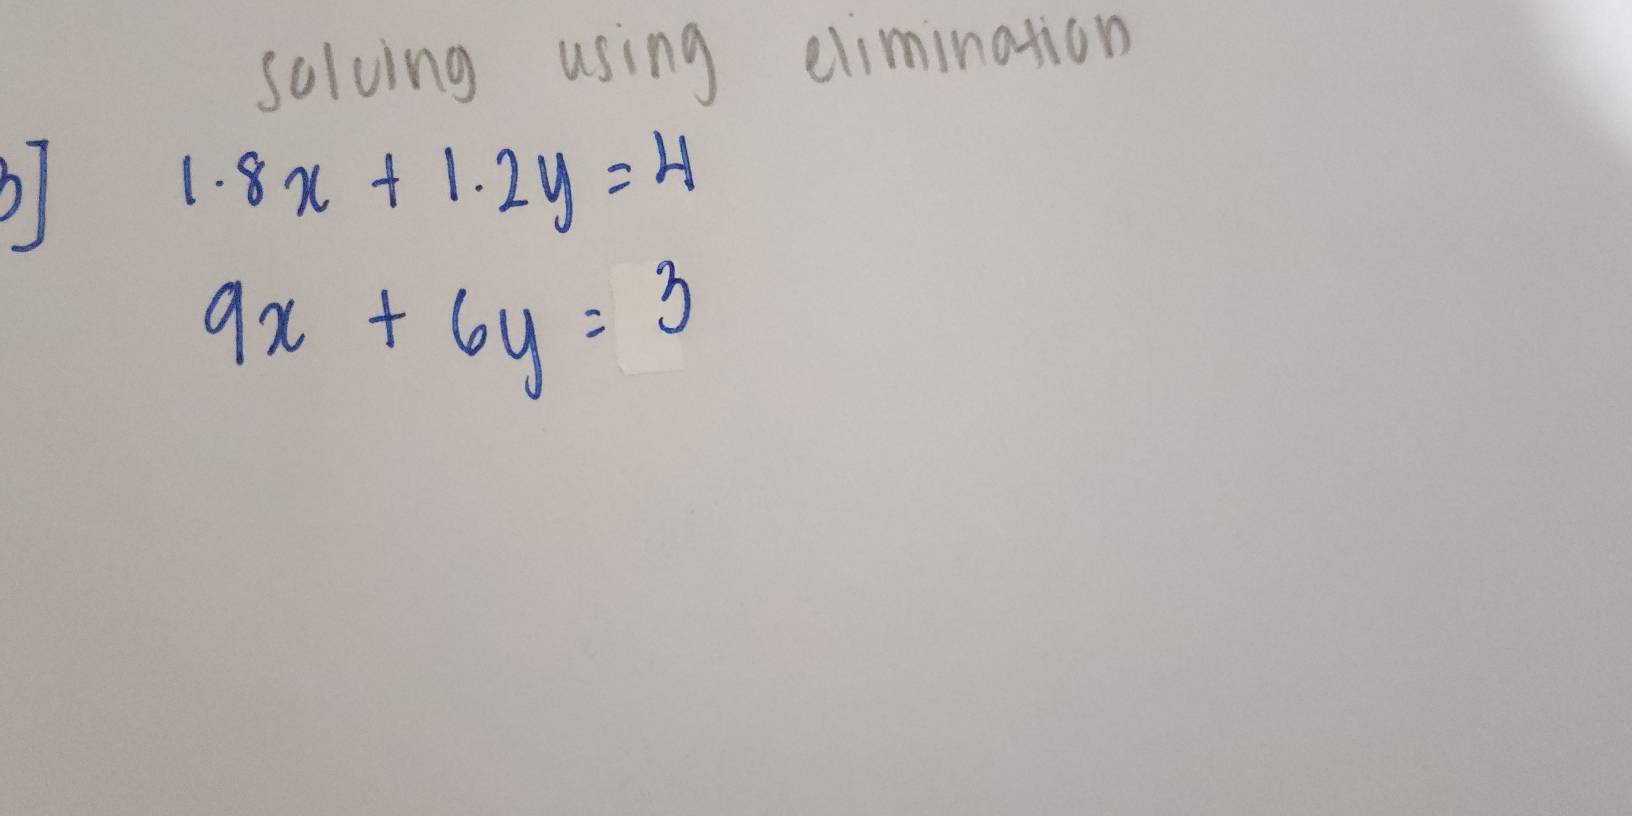 solving using elimination
3] 1.8x + 1.2y = 4
9x + 6y = 3